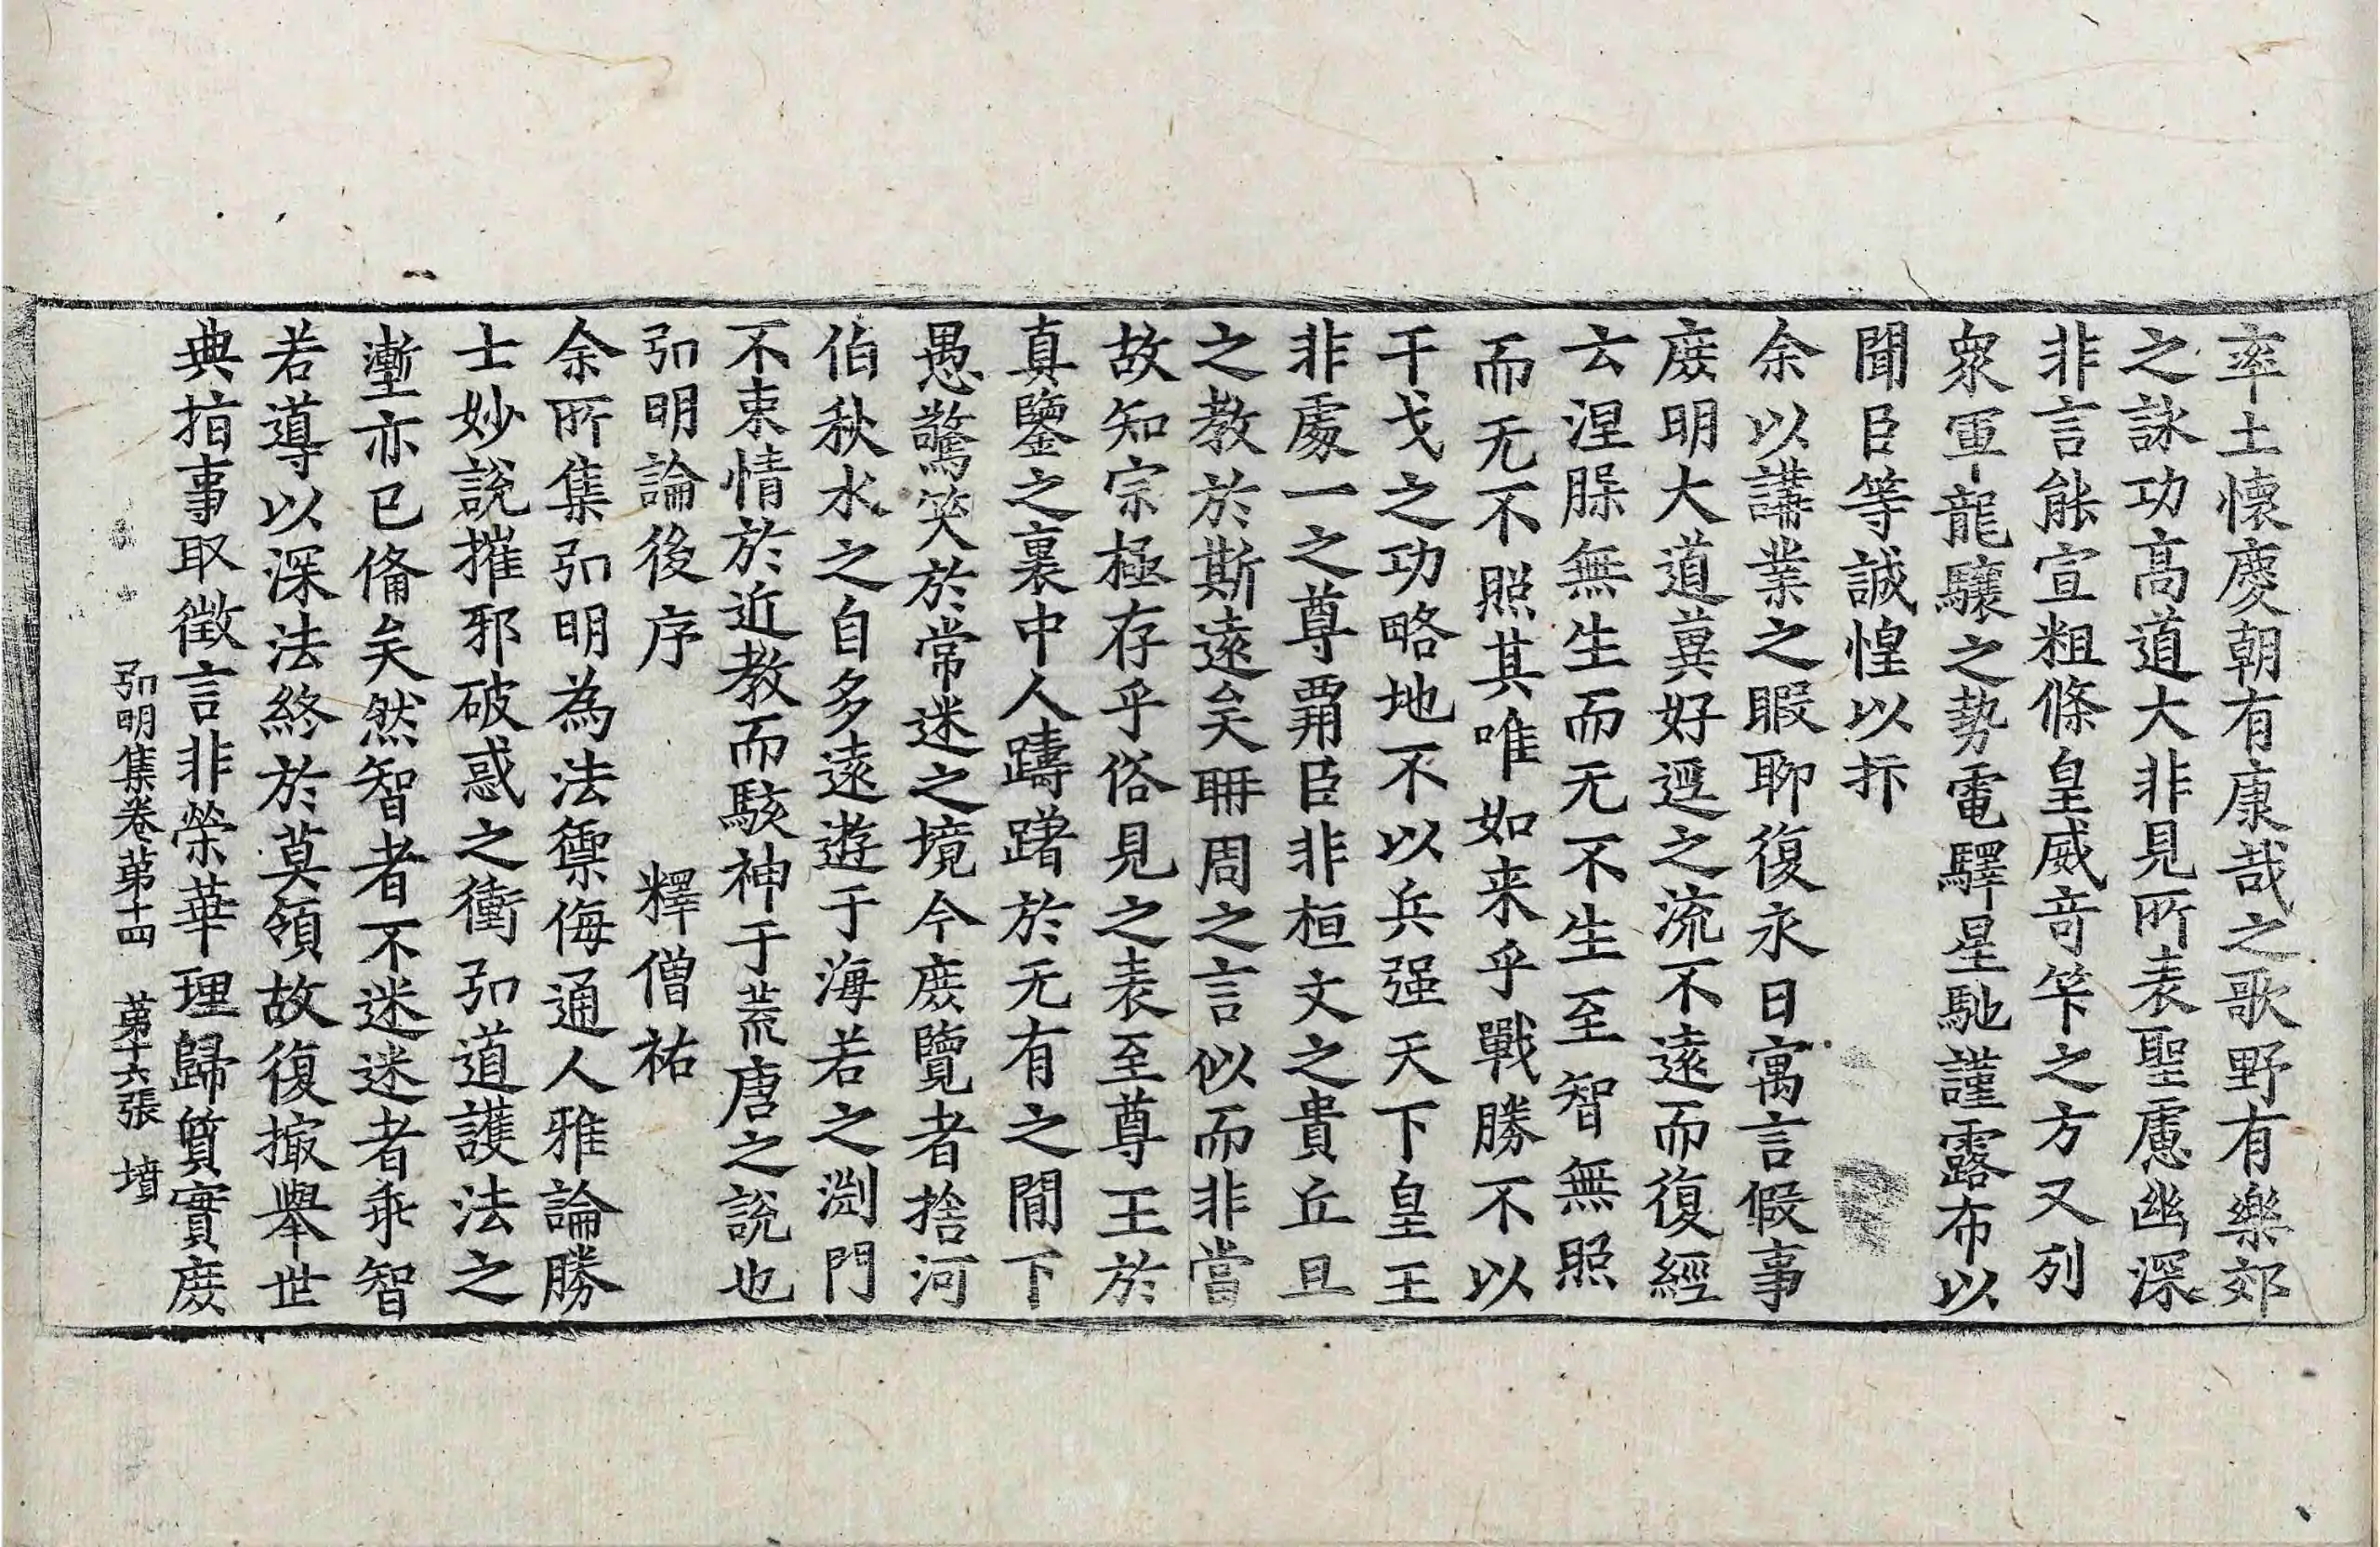 率土懷慶朝有康哉之歌野有樂郊
之詠功高道大非見所表聖慮幽深
非言能宣粗條皇威奇筭之方又列
衆軍龍驤之勢電驛星馳謹露布以
聞臣等誠惶以抃
余以講業之暇聊復永日寓言假事
庻明大道兾好遥之流不遠而復經
云涅腂無生而无不生至智無照
而无不照其唯如来乎戰勝不以
干戈之功略地不以兵强天下皇王
非處一之尊霸臣非桓文之貴丘旦
之教於斯遠矣聃周之言似而非當
故知宗極存乎俗見之表至尊王於
真鑒之裏中人躊躇於无有之間下
愚驚笑於常迷之境今庻覽者捨河
伯秋水之自多遠遊于海若之渕門
不束情於近教而駭神于荒唐之說也
弘明論後序　釋僧祐
余所集弘明為法禦侮通人雅論勝
士妙說摧邪破惑之衝弘道護法之
壍亦已俻矣然智者不迷迷者乖智
若導以深法終於莫領故復撮舉世
典指事取徵言非榮華理歸質實庻
弘明集卷第十四　第十六張　墳